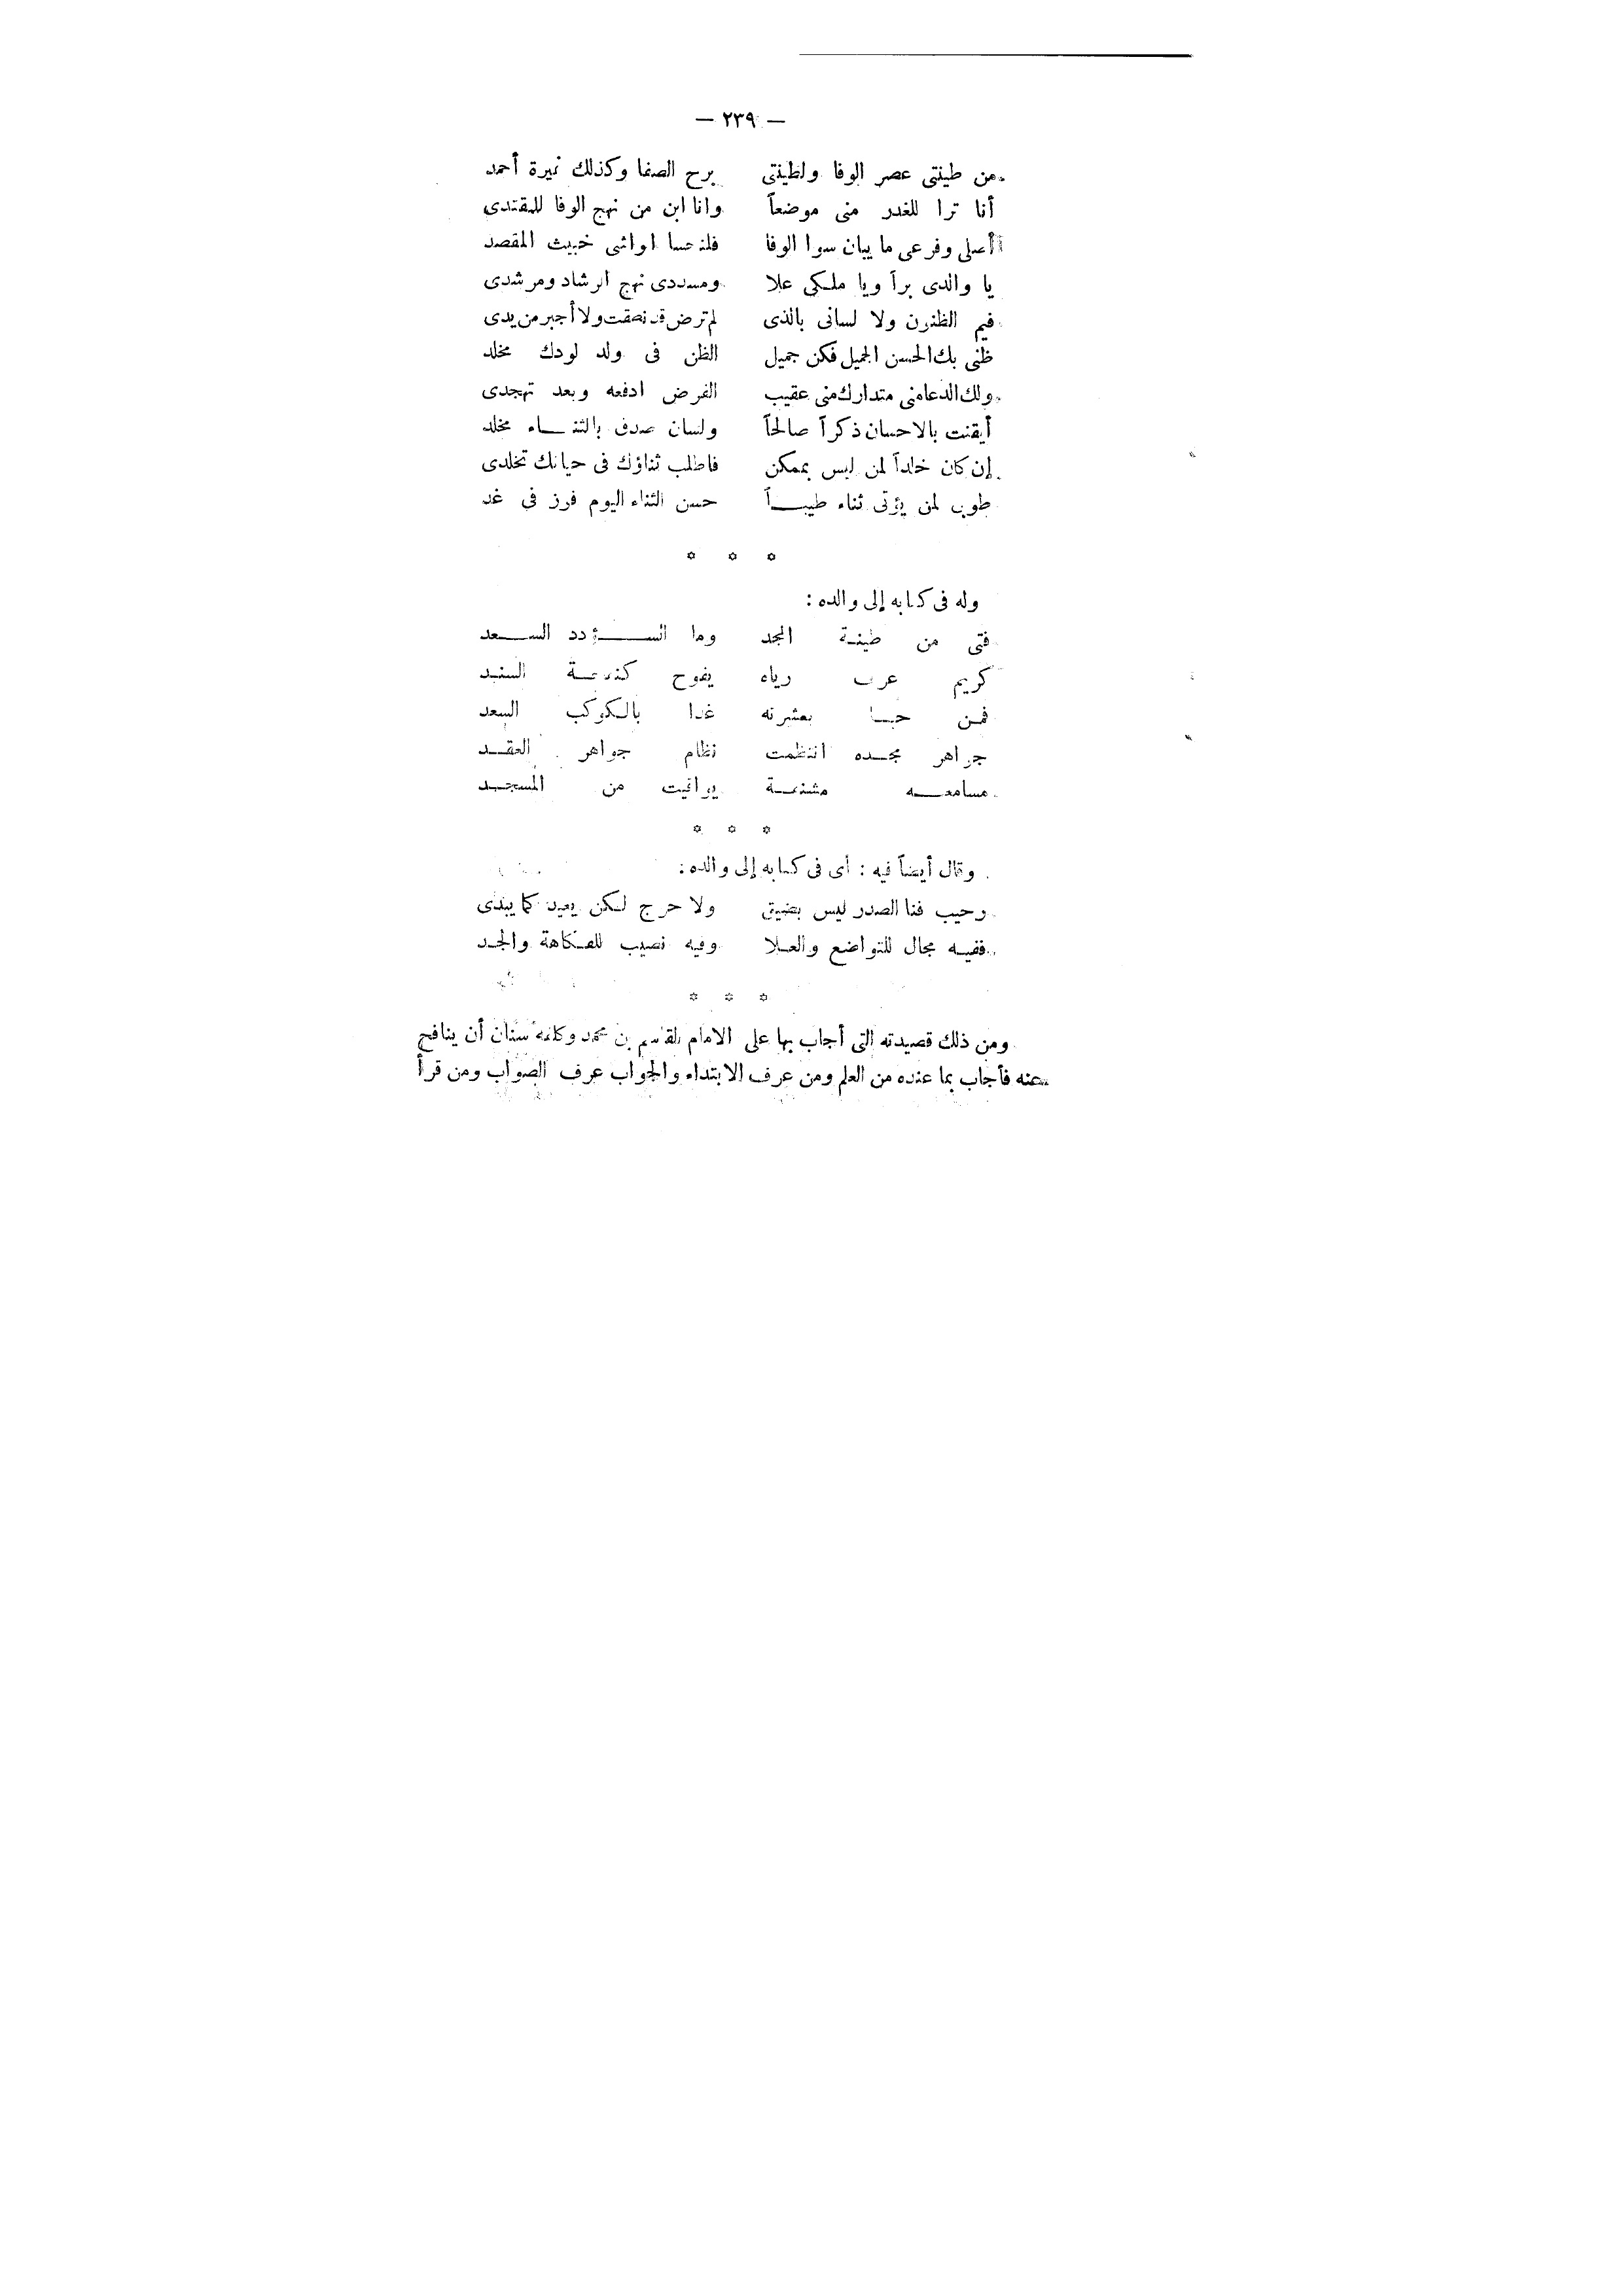 — ٢٣٩ —
من طينتى عصر الوفا ولطينتى برح الصفا وكذلك نميرة أحمد
أنا ترا للغدر منى موضعاً وانا ابن من نهج الوفا للمقتدى
أصلى وفرعى ما يبان سوا الوفا خبيث المقصد
يا والدى براً ويا ملكى علا ومسددى نهج الرشاد ومرشدى
فيم الظنون ولا لسانى بالذى لم ترض قد نطقت ولا أجبر من يدى
ظنى بك الحسن الجميل فكن جميل الظن فى ولد لودك مخلد
ولك الدعا منى متدارك منى عقيب الفرض ادفعه وبعد تهجدى
أيقنت بالاحسان ذكراً صالحاً ولسان صدق بالثناء مخلد
إن كان خلداً لمن ليس بممكن فاطلب ثناؤك فى حياتك تخلدى
طوبى لمن يؤتى ثناء طيباً حسن الثناء اليوم فوز فى غد
* * *
وله فى كتابه إلى والده :
فتى من طينة المجد وما السؤدد السعد
كريم عرب رياه يفوح السند
فمن حبا بعشرته غدا بالكوكب السعد
جواهر مجده انتظمت نظام جواهر العقد
مسامعه مشنفة يواقيت من المسجد
* * *
وقال أيضاً فيه : أى فى كتابه إلى والده :
رحيب فنا الصدر ليس بضيق ولا حرج لكن يعيد كما يبدى
ففيه مجال للتواضع والعلا وفيه نصيب للفكاهة والجد
* * *
ومن ذلك قصيدته التى أجاب بها على الامام القاسم بن محمد وكلفه سنان أن ينافح
عنه فأجاب بما عنده من العلم ومن عرف الابتداء والجواب عرف الصواب ومن قرأ